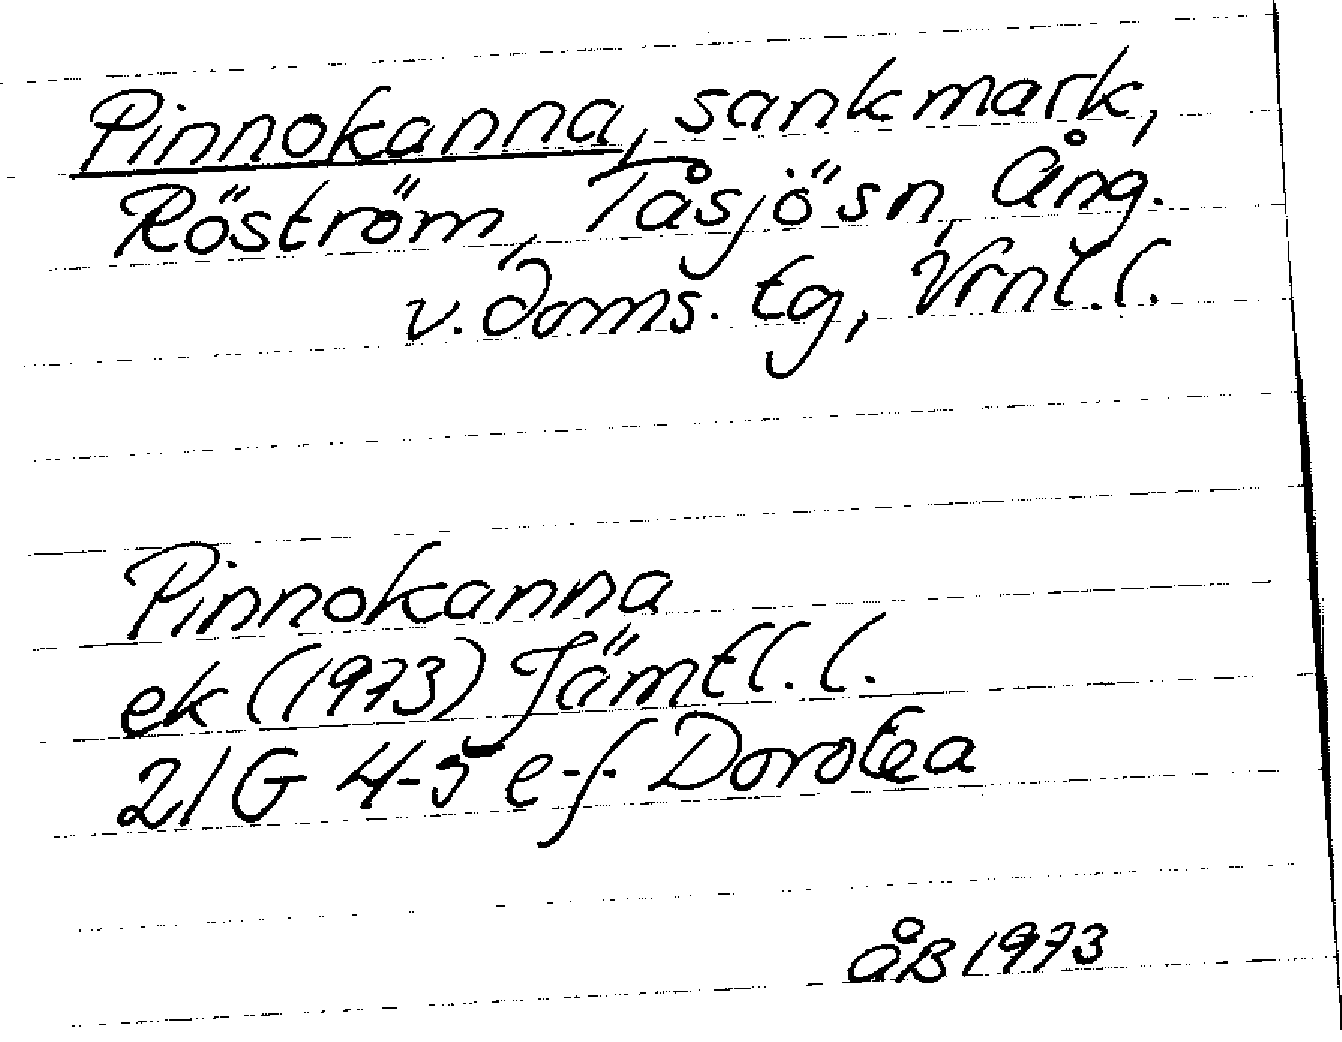 Pinnokanna, sankmark,
Röström, Tåsjösn, Ång.
v. doms. tg, Vrnl.l.
Pinnokanna
ek (1973) Jämtl.l.
21 G 4-5 e-f. Dorotea
ÅB 1973